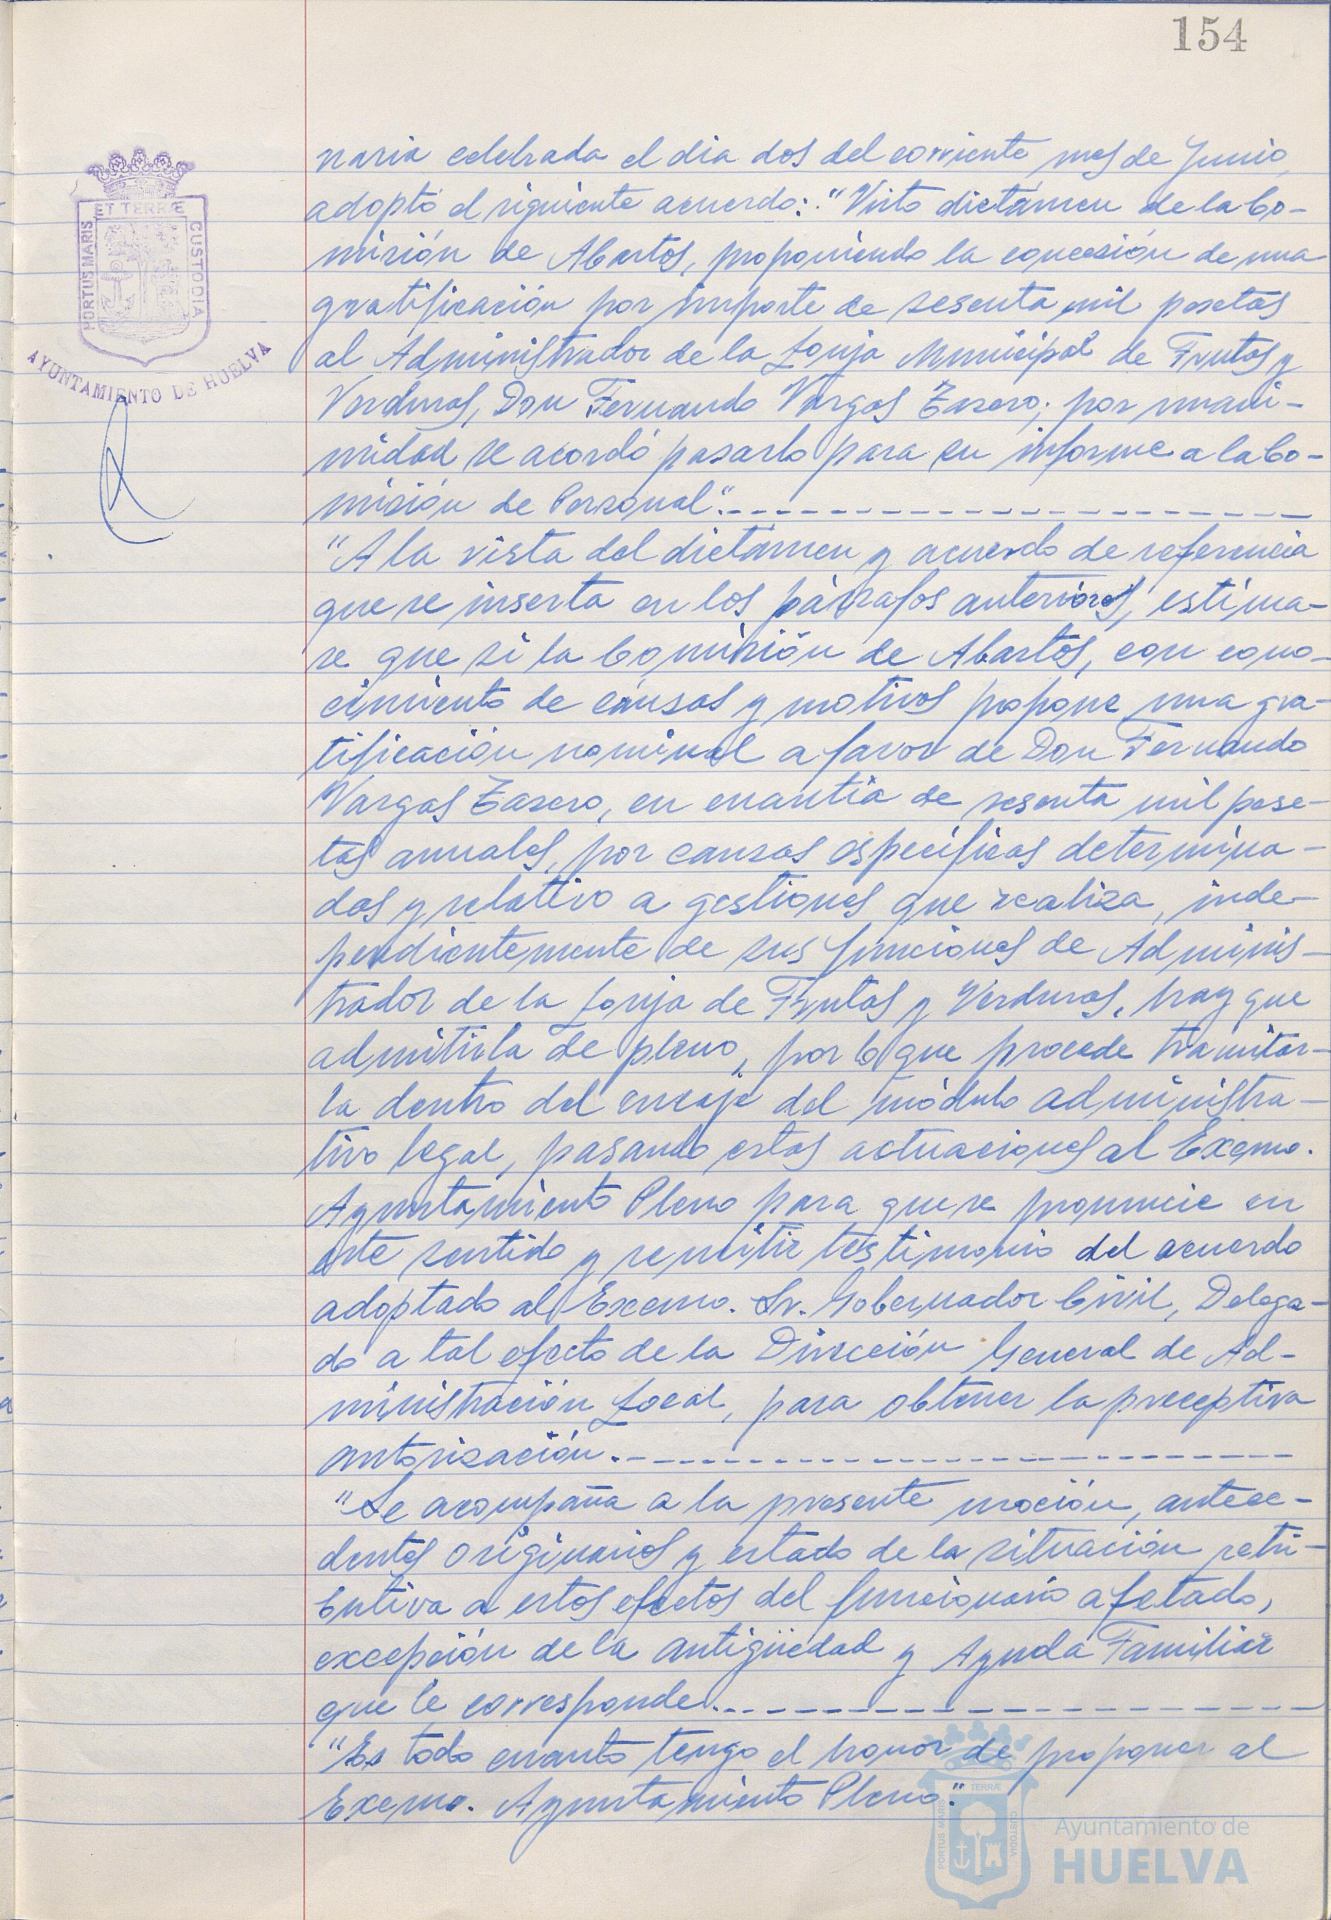 154
ET TERRÆ
PORTUS MARIS
CUSTODIA
AYUNTAMIENTO DE HUELVA
naria celebrada el dia dos del corriente mes de Junio,
adoptó el siguiente acuerdo: "Visto dictámen de la Co-
misión de Abastos, proponiendo la concesión de una
gratificación por importe de sesenta mil pesetas
al Administrador de la Lonja Municipal de Frutas y
Verduras, Don Fernando Vargas Zasero; por unani-
midad se acordó pasarlo para su informe a la Co-
misión de Personal".
"A la vista del dictámen y acuerdo de referencia
que se inserta en los párrafos anteriores, estima-
se que si la Comisión de Abastos, con cono-
cimiento de causas y motivos propone una gra-
tificación nominal a favor de Don Fernando
Vargas Zasero, en cuantia de sesenta mil pese-
tas anuales, por causas específicas determina-
das y relativo a gestiones que realiza, inde-
pendientemente de sus funciones de Adminis-
trador de la Lonja de Frutas y Verduras, hay que
admitirla de pleno, por lo que procede tramitar-
la dentro del encaje del módulo administra-
tivo legal, pasando estas actuaciones al Excmo.
Ayuntamiento Pleno para que se pronuncie en
este sentido y remitir testimonio del acuerdo
adoptado al Excmo. Sr. Gobernador Civil, Delega-
do a tal efecto de la Dirección General de Ad-
ministración Local, para obtener la preceptiva
autorización.
"Se acompaña a la presente moción, antece-
dentes originarios y estado de la situación retri-
butiva a estos efectos del funcionario afetado,
excepción de la antigüedad y Ayuda Familiar
que le corresponde.
"Es todo cuanto tengo el honor de proponer al
Excmo. Ayuntamiento Pleno."
TERRÆ
PORTUS MARIS
CUSTODIA
Ayuntamiento de
HUELVA